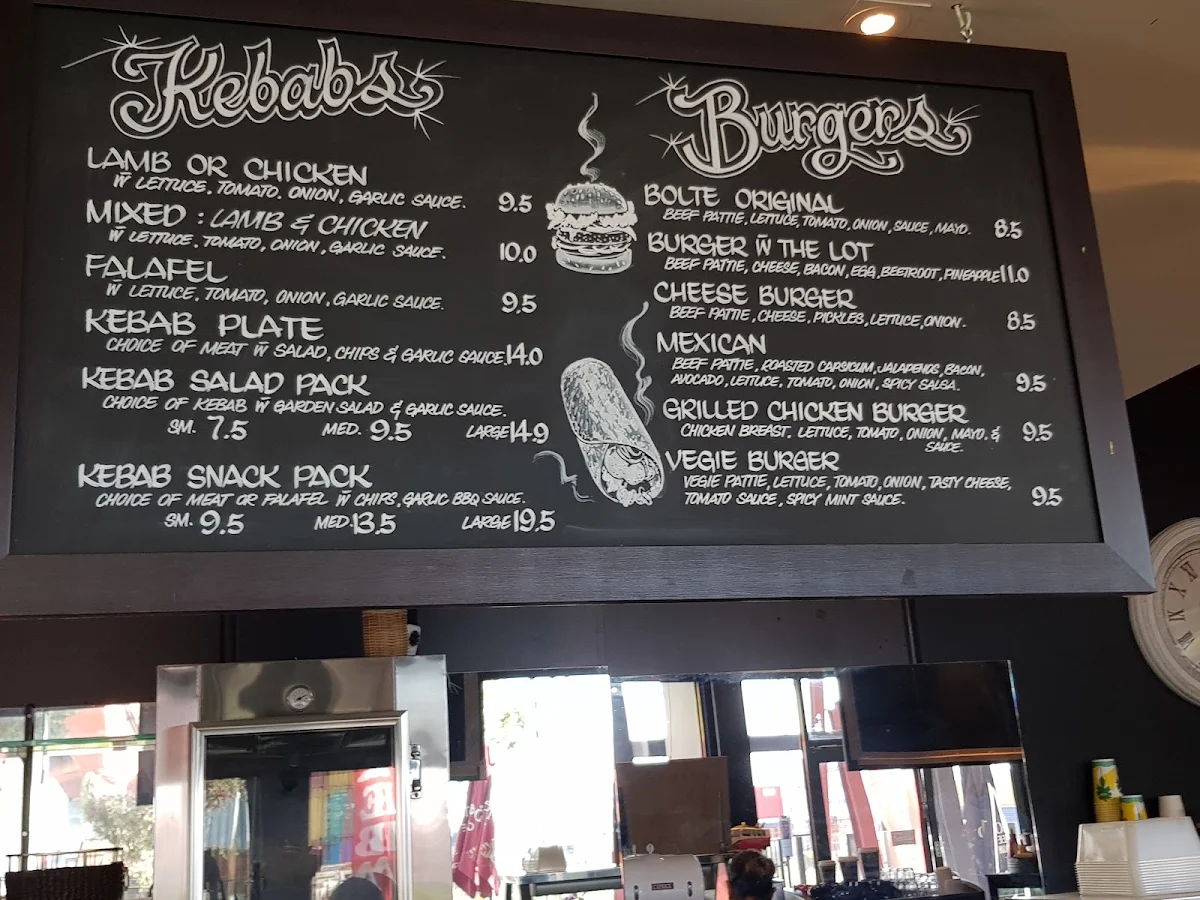 Kebabs
LAMB OR CHICKEN
W̄ LETTUCE, TOMATO, ONION, GARLIC SAUCE. 9.5
MIXED : LAMB & CHICKEN
W̄ LETTUCE, TOMATO, ONION, GARLIC SAUCE. 10.0
FALAFEL
W̄ LETTUCE, TOMATO, ONION, GARLIC SAUCE. 9.5
KEBAB PLATE
CHOICE OF MEAT W̄ SALAD, CHIPS & GARLIC SAUCE 14.0
KEBAB SALAD PACK
CHOICE OF KEBAB W̄ GARDEN SALAD & GARLIC SAUCE.
SM. 7.5 MED. 9.5 LARGE 14.9
KEBAB SNACK PACK
CHOICE OF MEAT OR FALAFEL W̄ CHIPS, GARLIC BBQ SAUCE.
SM. 9.5 MED. 13.5 LARGE 19.5
Burgers
BOLTE ORIGINAL
BEEF PATTIE, LETTUCE, TOMATO, ONION, SAUCE, MAYO. 8.5
BURGER W̄ THE LOT
BEEF PATTIE, CHEESE, BACON, EGG, BEETROOT, PINEAPPLE 11.0
CHEESE BURGER
BEEF PATTIE, CHEESE, PICKLES, LETTUCE, ONION. 8.5
MEXICAN
BEEF PATTIE, ROASTED CAPSICUM, JALAPENOS, BACON,
AVOCADO, LETTUCE, TOMATO, ONION, SPICY SALSA. 9.5
GRILLED CHICKEN BURGER
CHICKEN BREAST, LETTUCE, TOMATO, ONION, MAYO. & 9.5
SAUCE.
VEGIE BURGER
VEGIE PATTIE, LETTUCE, TOMATO, ONION, TASTY CHEESE,
TOMATO SAUCE, SPICY MINT SAUCE. 9.5